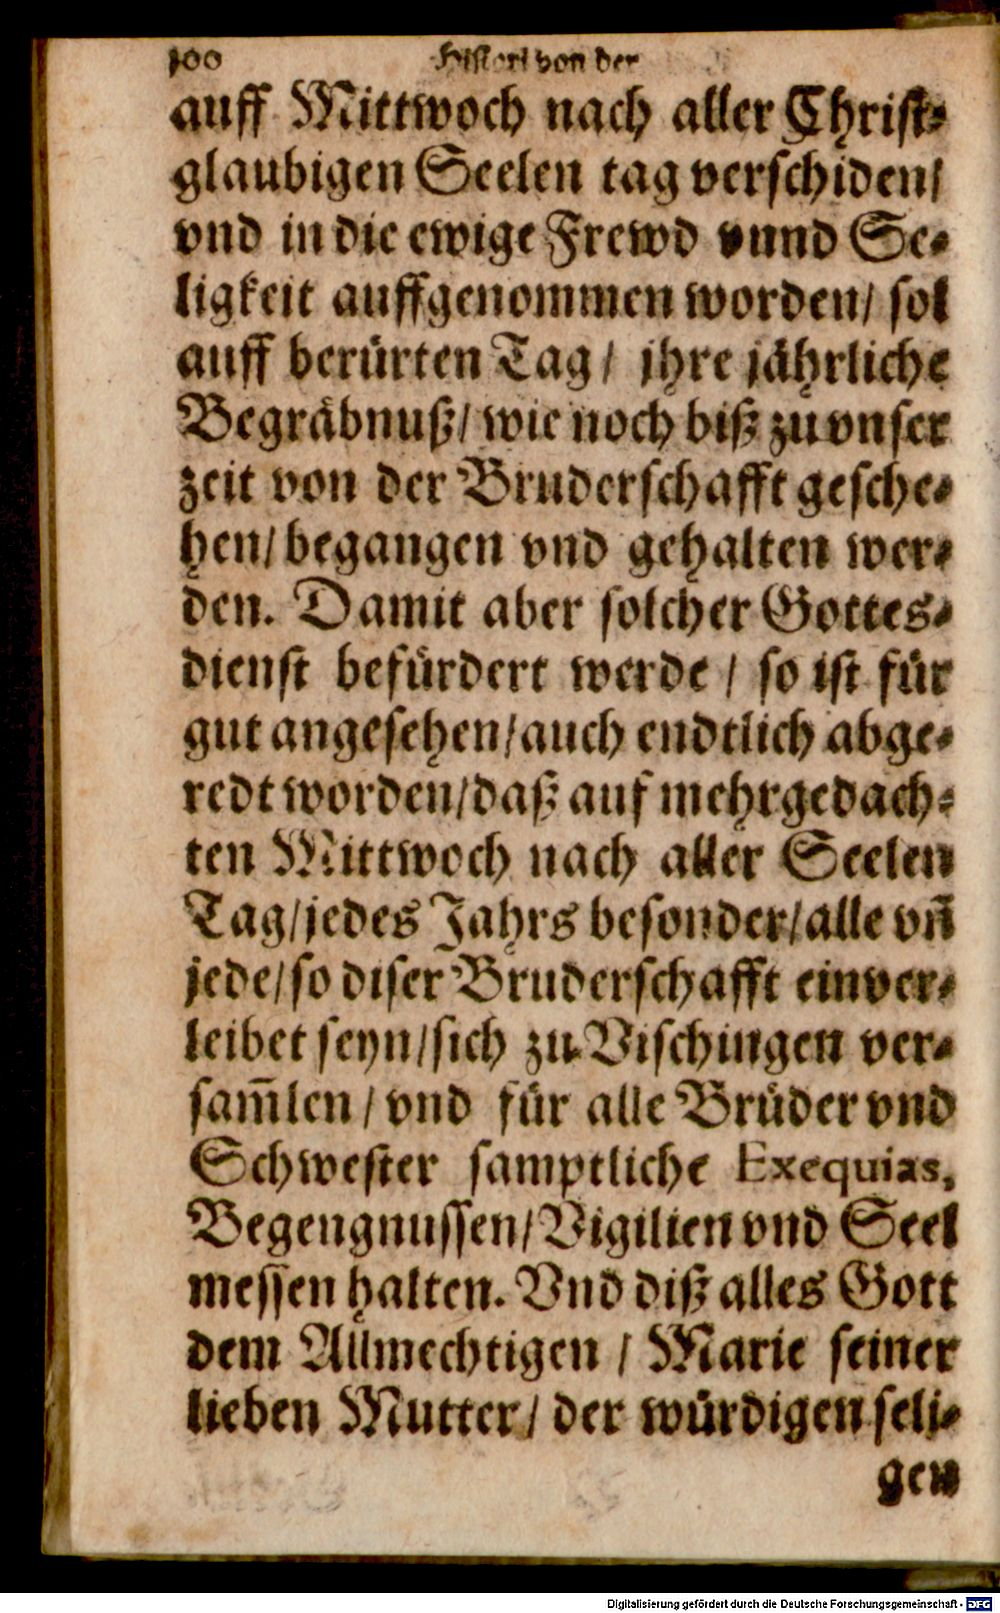 100 Histori von der
auff Mittwoch nach aller Christ-
glaubigen Seelen tag verschiden/
vnd in die ewige Frewd vnnd Se-
ligkeit auffgenommen worden/ sol
auff berürten Tag/ jhre jährliche
Begräbnuß/ wie noch biß zu vnser
zeit von der Bruderschafft gesche-
hen/ begangen vnd gehalten wer-
den. Damit aber solcher Gottes-
dienst befürdert werde / so ist für
gut angesehen/ auch endtlich abge-
redt worden/ daß auf mehrgedach-
ten Mittwoch nach aller Seelen
Tag/ jedes Jahrs besonder/ alle vñ
jede/ so diser Bruderschafft einver-
leibet seyn/ sich zu Vischingen ver-
sam̃len / vnd für alle Brüder vnd
Schwester samptliche Exequias,
Begengnussen/ Vigilien vnd Seel
messen halten. Vnd diß alles Gott
dem Allmechtigen / Marie seiner
lieben Mutter/ der würdigen seli-
gen
Digitalisierung gefördert durch die Deutsche Forschungsgemeinschaft - DFG